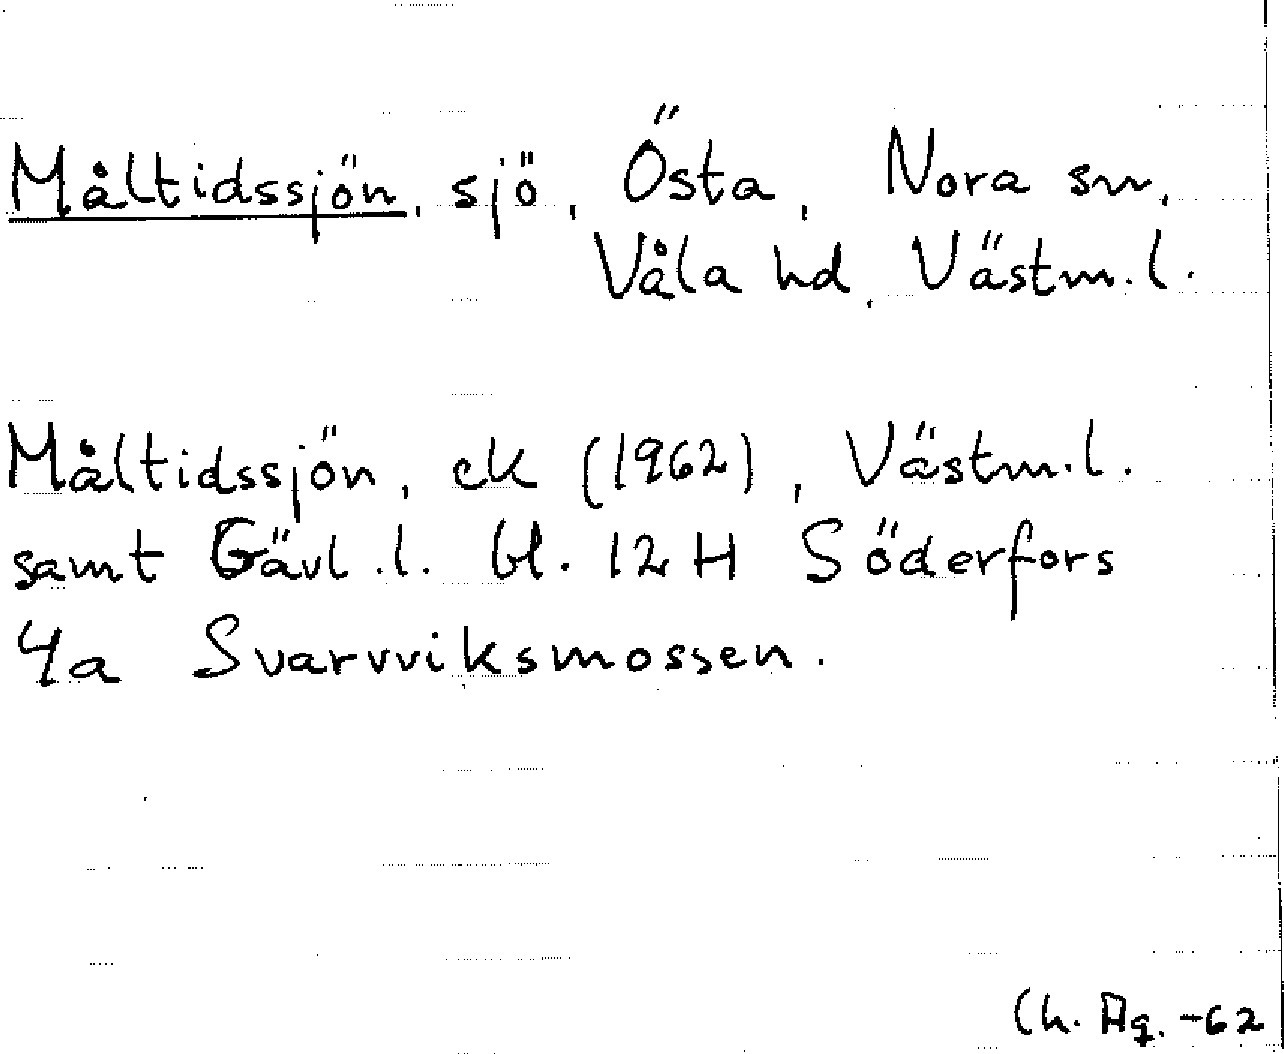 Måltidssjön, sjö, Östa, Nora sn,
Våla hd, Västm.l.
Måltidssjön, ek (1962), Västm.l.
samt Gävl.l. bl. 12 H Söderfors
4a Svarvviksmossen.
Ch. Ag. -62